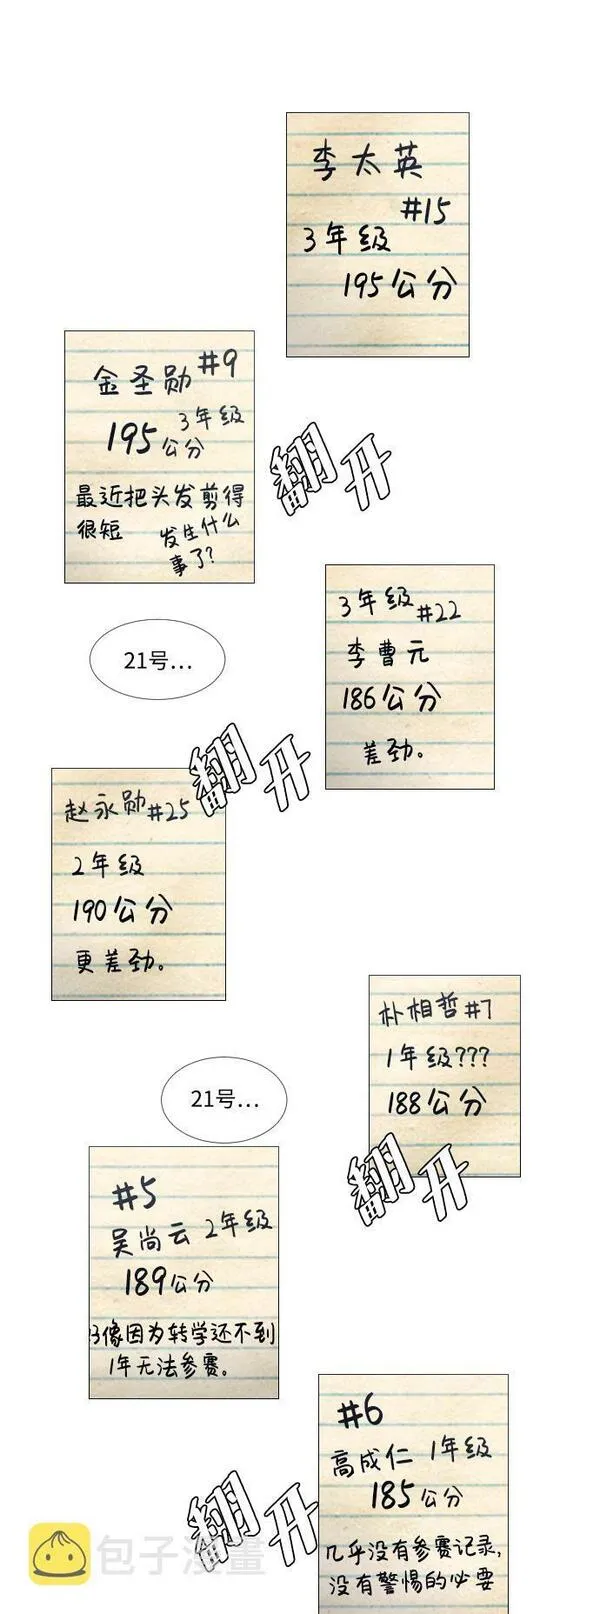 李太英
#15
3年级
195公分
金圣勋 #9
3年级
195公分
最近把头发剪得
很短 发生什么
事了?
翻开
3年级 #22
李曹元
186公分
差劲。
21号…
翻开
赵永勋#25
2年级
190公分
更差劲。
朴相哲#7
1年级???
188公分
21号…
翻开
#5
吴尚云 2年级
189公分
好像因为转学还不到
1年无法参赛。
#6
高成仁 1年级
185公分
几乎没有参赛记录,
没有警惕的必要
翻开
包子漫畫